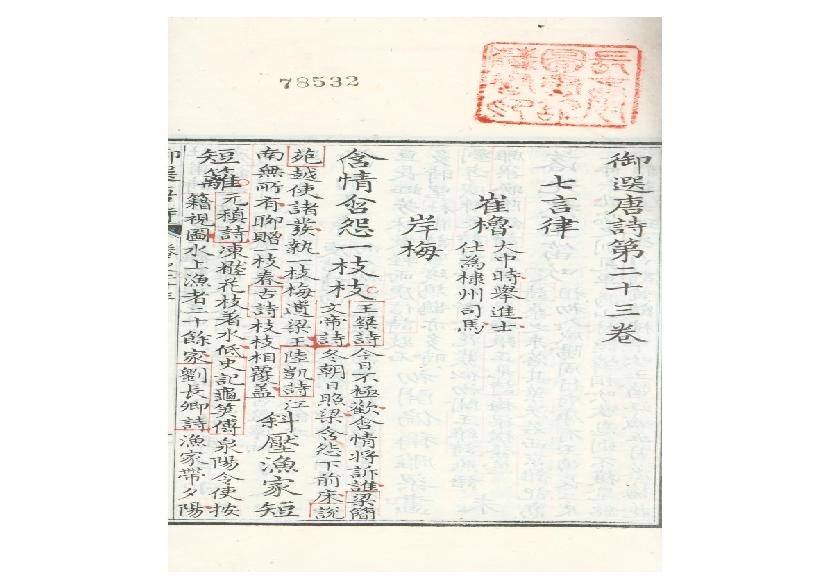 78532
御選唐詩第二十三卷
七言律
崔櫓
大中時舉進士
仕為棣州司馬
岸梅
含情含怨一枝枝
王粲詩今日不極歡含情將訴誰梁簡
文帝詩冬朝日照梁含怨下前床說
苑越使諸發執一枝梅遺梁王陸凱詩江
南無所有聊贈一枝春古詩枝枝相覆蓋
斜壓漁家短
短籬
元稹詩凍花枝著水低史記龜筴傳泉陽令使按
籍視圖水上漁者二十餘家劉長卿詩漁家帶夕陽